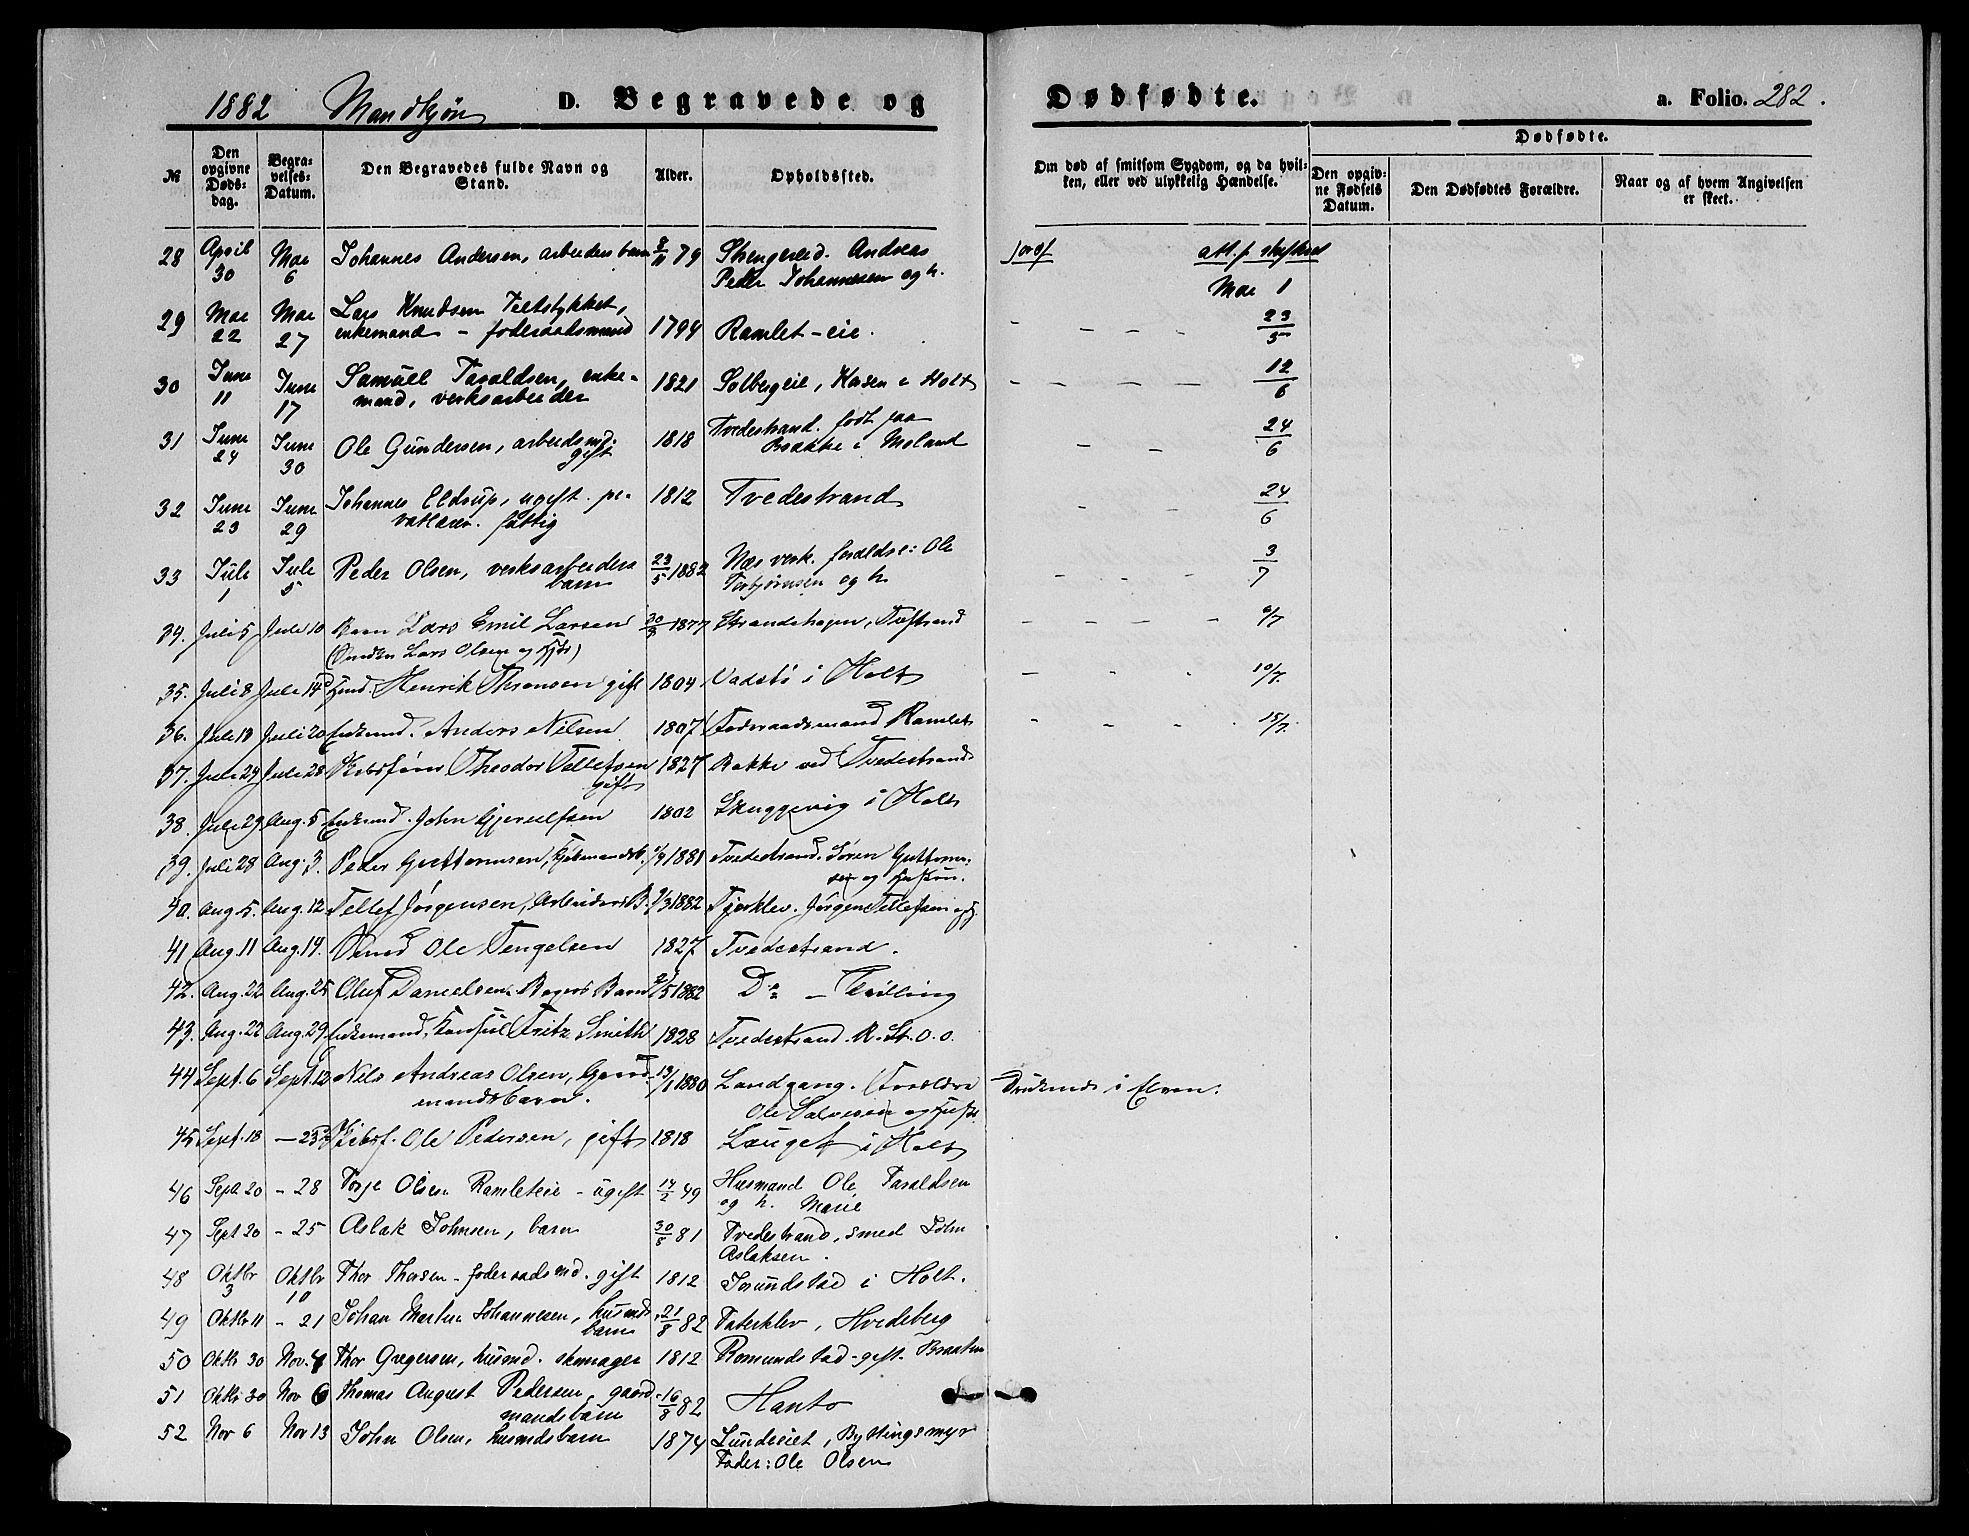 1882 Mandkjøn D. Begravede og Dødfødte. a. Folio. 282.
Dødfødte.
№ Den opgivne Døds-dag. Begra-velses-Datum. Den Begravedes fulde Navn og Stand. Alder. Opholdssted. Om død af smitsom Sygdom, og da hvil-ken, eller ved ulykkelig Hændelse. Den opgiv-ne Fødsels Datum. Den Dødfødtes Forældre. Naar og af hvem Angivelsen er skeet.
28 April 30 Mai 6 Johannes Andersen, arbeidersbarn 79 Strengereid. Andreas
Peder Johannesen og h. Mai 1
29 Mai 22 Mai 27 Lars Knudsen
enkemand - foderaadsmand 1794 Ramlet-eie. 23/5
30 Juni 11 Juni 17 Samuel Taraldsen, enke-
mand, verksarbeider 1821 Solbergeie, i Holt 12/6
31 Juni 24 Juni 30 Ole Gundersen, arbeidsmd.
gift 1818 Tvedestrand. født paa
Brække i Moland 24/6
32 Juni 23 Juni 29 Johannes Eldrup, ugift. pr-
vatlærer. fattig 1812 Tvedestrand 24/6
33 Juli 1 Juli 5 Peder Olsen, verksarbeiders
barn 23/5 1882 Næs verk. forældre: Ole
Torbjørnsen og h. 3/7
34. Juli 5 Juli 10 Barn Lars Emil Larsen 1877 Strandehagen,
Lars Olsen og
35. Juli 8 Juli 14 Henrik Thronsen gift 1804 Vadstø i Holt 10/7.
36. Juli 13 Juli 20 Enkemd. Anders Nilsen 1807 Foderaadsmand Ramlet 15/7.
37. Juli 24 Juli 28 Theodor Tellefsen
gift 1827 Bakke ved Tvedestrand
38. Juli 29 Aug. 5 Enkemd. John Gjerulfsen 1802 Skuggevig i Holt
39. Juli 28 Aug. 3. Peder Guttormsen, Kjøbmandsb. 1881 Tvedestrand. Søren Guttorm-
sen og Hustru.
40. Aug. 5. Aug. 12 Tellef Jørgensen, Arbeiders B. 1882 Fjerklev. Jørgen Tellefsen og
41 Aug. 11 Aug. 14. Ole Tengelsen 1827 Tvedestrand.
42. Aug. 22 Aug. 25 Oluf Danielsen. Bagers Barn 1882 Do - Tvilling
43. Aug. 22 Aug. 29 Enkemand, Konsul Fritz Smith 1828 Tvedestrand. R. St. O. O.
44 Sept. 6 Sept. 12 Nils Andreas Olsen, Gaard-
mandsbarn. 13/1 1880 Landgang. Forældre
Ole Salvesen og Druknede i Elven.
45 Sept. 18 - 23 Ole Pedersen, gift 1818 Lauget i Holt
46 Sept. 20 - 28 Torje Olsen Ramleteie - ugift 49 Husmand Ole Taraldsen
og h. Marie
47 Sept 20 - 25 Aslak Johnsen, barn 81 Tvedestrand, smed John
Aslaksen.
48 Oktbr 3 Oktbr 10 Thor Thorsen - foderaadsmd. gift 1812 Jorundstad i Holt.
49 Oktbr 11 - 21 Johan Martin Johannesen, husmds
barn 21/8 82 Faterklev, Hvedeberg
50 Oktbr 30 Nov. 4 Thor Gregersen, husmd. skomager 1812 Romundstad - gift - Braaten
51 Oktbr 30 Nov 6 Thomas August Pedersen, gaard-
mandsbarn 16/8 82 Hanto
52 Nov 6 Nov 13 John Olsen, husmdsbarn 1874 Lundeiet, Byttingsmyr
Fader: Ole Olsen